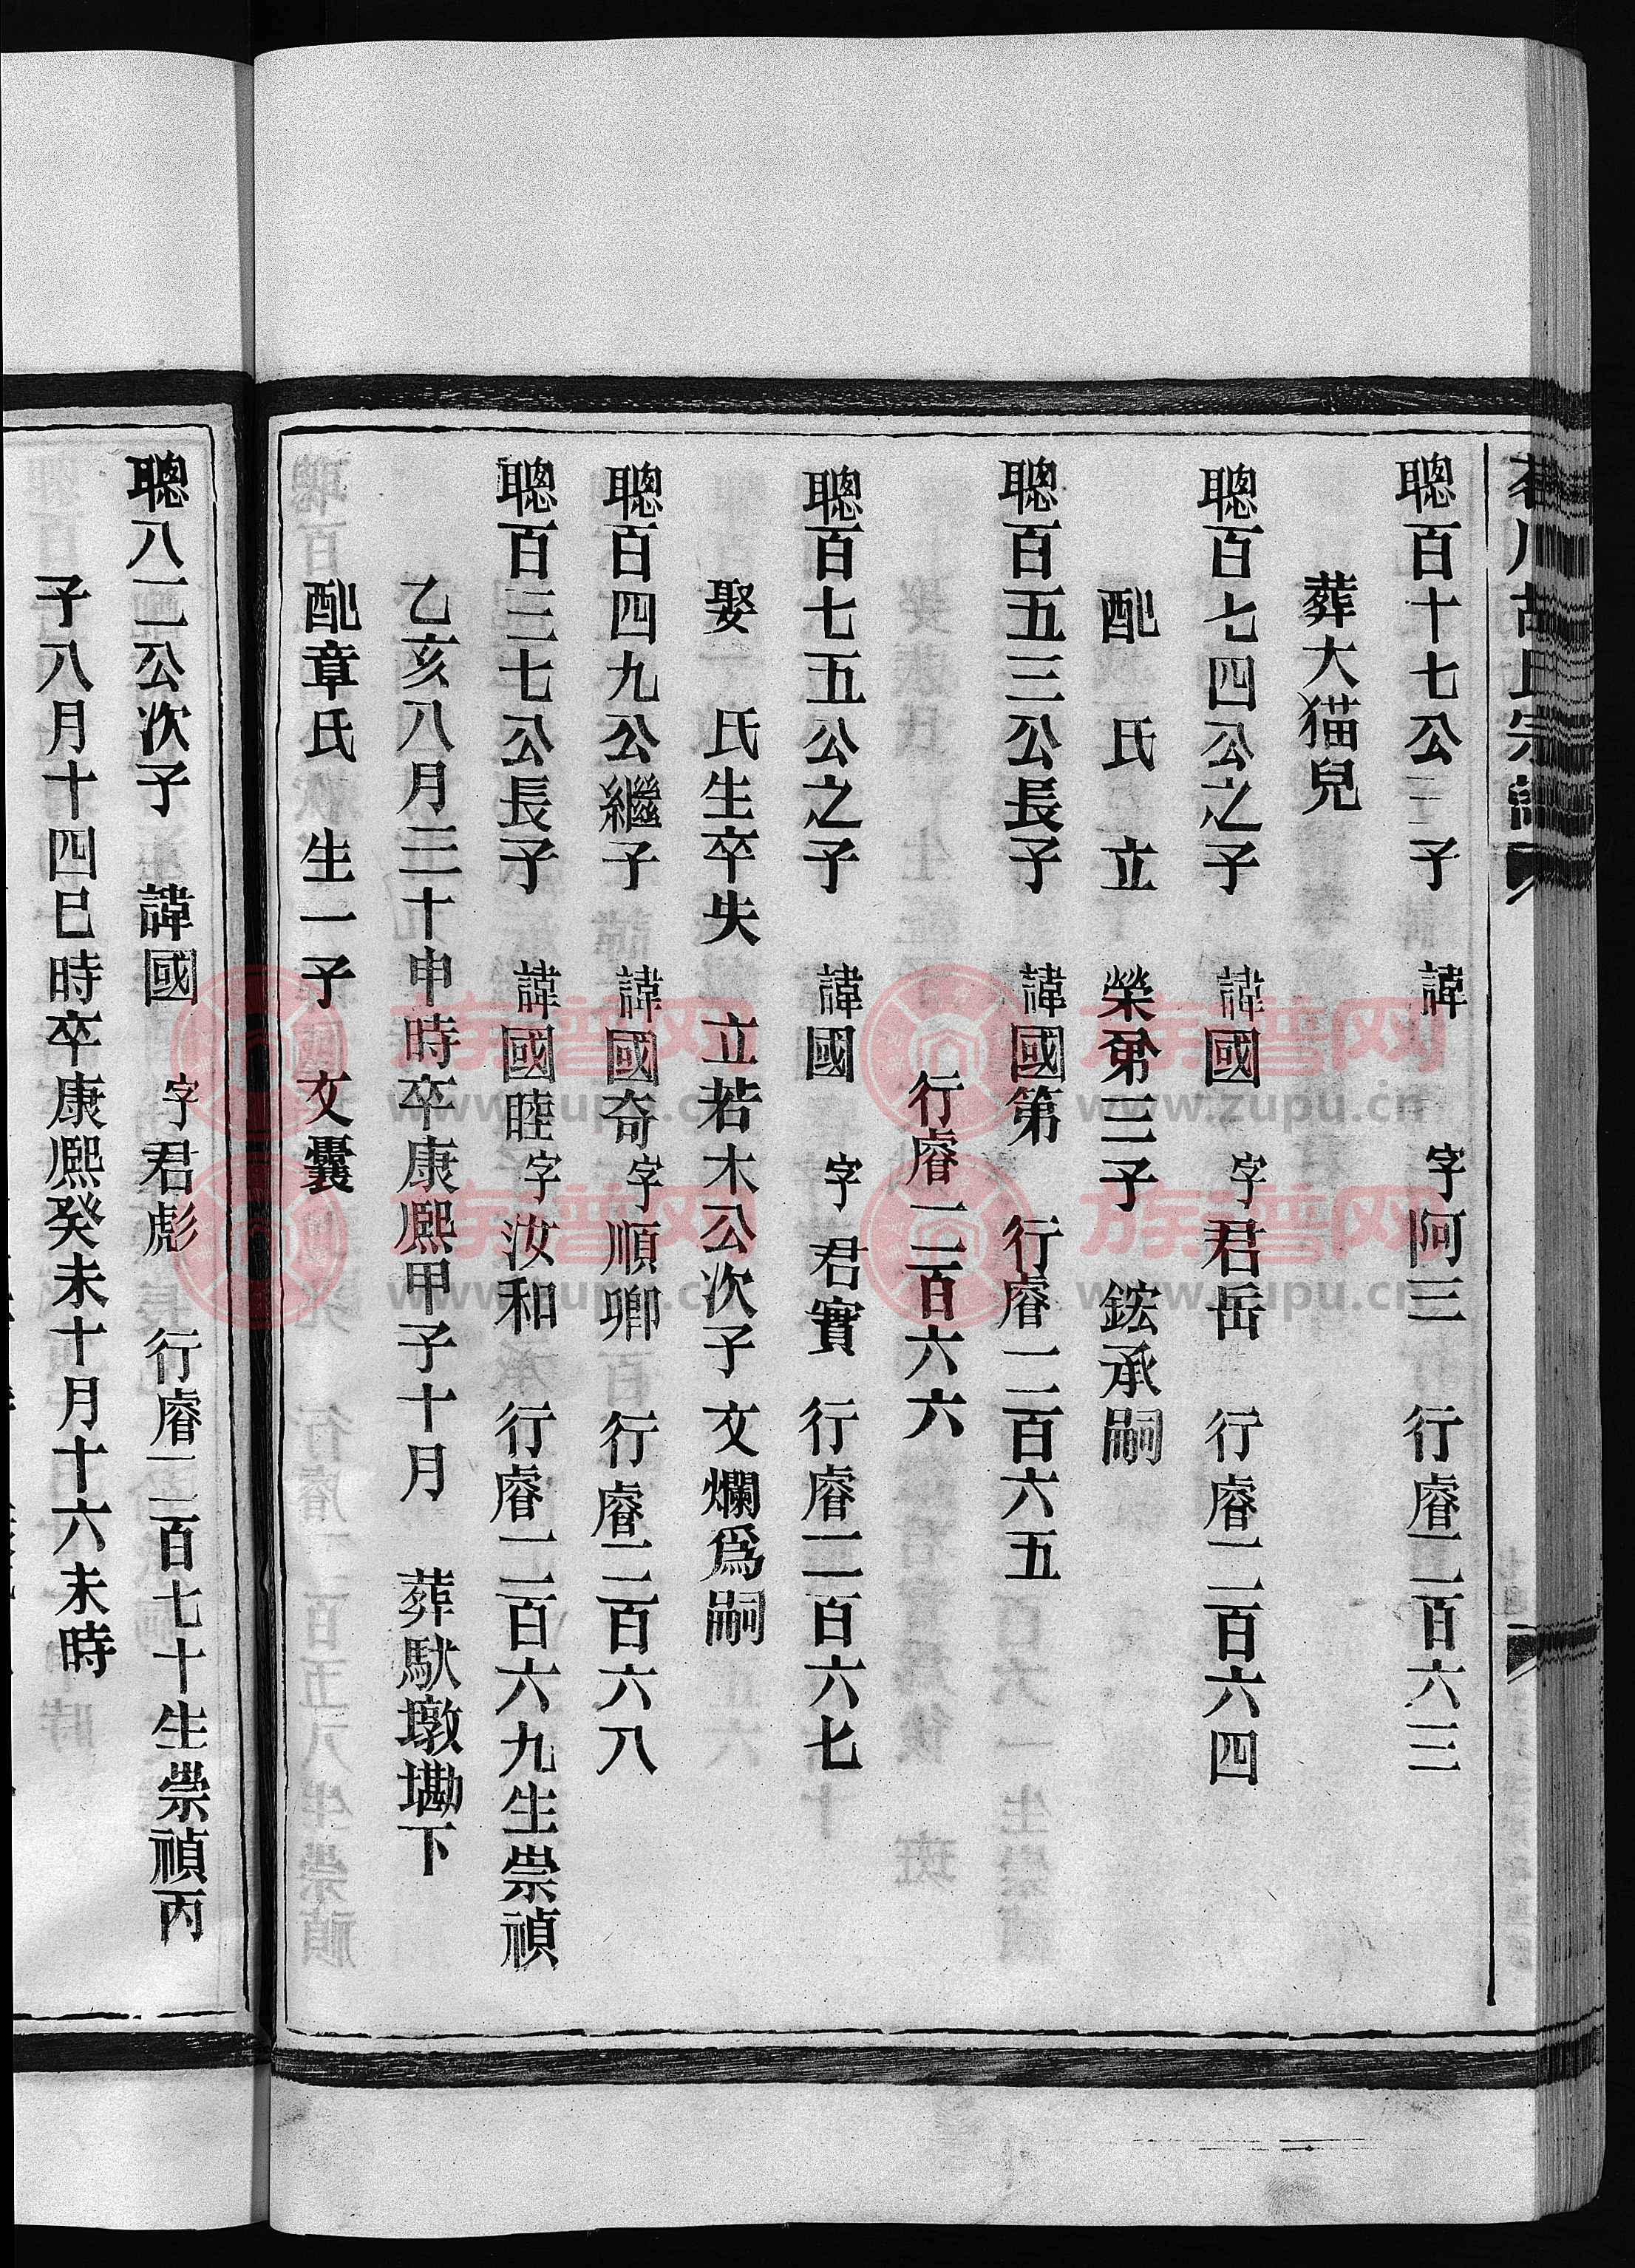 聰百十七公三子　諱　字阿三　行睿二百六三
葬大猫兒
聰百七四公之子　諱國　字君岳　行睿二百六四
配　氏　立　榮第三子　鋐承嗣
聰百五三公長子　諱國第　行睿二百六五
行睿二百六六
聰百七五公之子　諱國　字君實　行睿二百六七
娶　氏生卒失　立若木公次子文爛爲嗣
聰百四九公繼子　諱國奇字順卿　行睿二百六八
聰百三七公長子　諱國睦字汝和　行睿二百六九生崇禎
乙亥八月三十申時卒康熙甲子十月　葬馱墩墈下
配章氏　生一子　文囊
聰八二公次子　諱國　字君彪　行睿二百七十生崇禎丙
子八月十四巳時卒康熙癸未十月十六未時
族譜网
www.zupu.cn
族譜网
www.zupu.cn
族譜网
www.zupu.cn
族譜网
www.zupu.cn